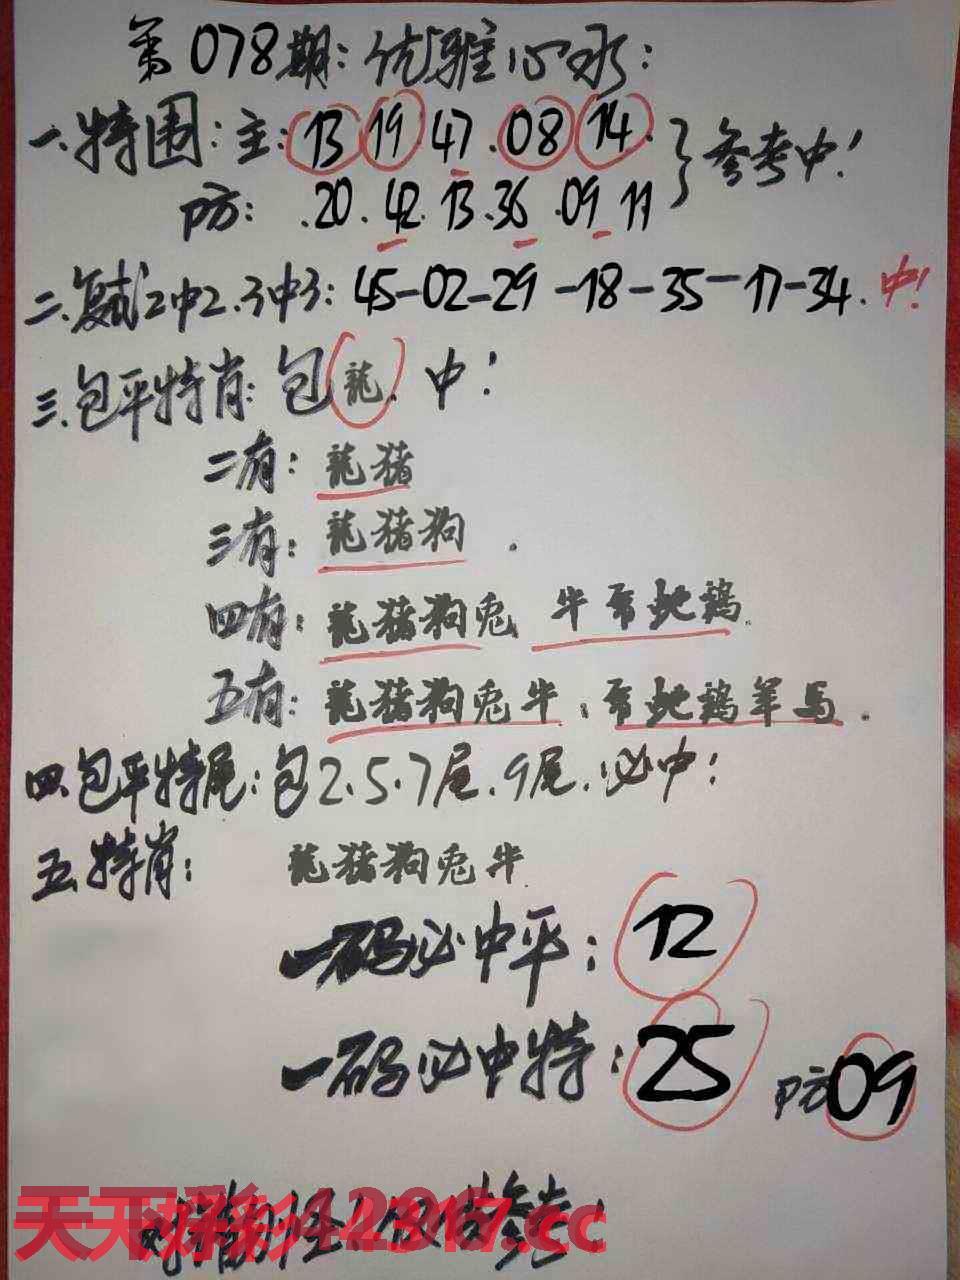 第078期:优雅心水:
一.特围:主:13 19 47.08 14.
防:.20.42.13.36.09 11
参考中!
二.复试2中2.3中3:45-02-29-18-35-17-34.中!
三.包平特肖:包龍.中!
二有:龍猪
三有:龍猪狗.
四有:龍猪狗兎 牛 蛇鷄.
五有:龍猪狗兎牛: 蛇鷄羊马.
四.包平特尾:包2.5.7尾.9尾.必中!
五.特肖: 龍猪狗兎牛.
一码必中平:12
一码必中特:25 防09
天下彩4296.cc
参考!